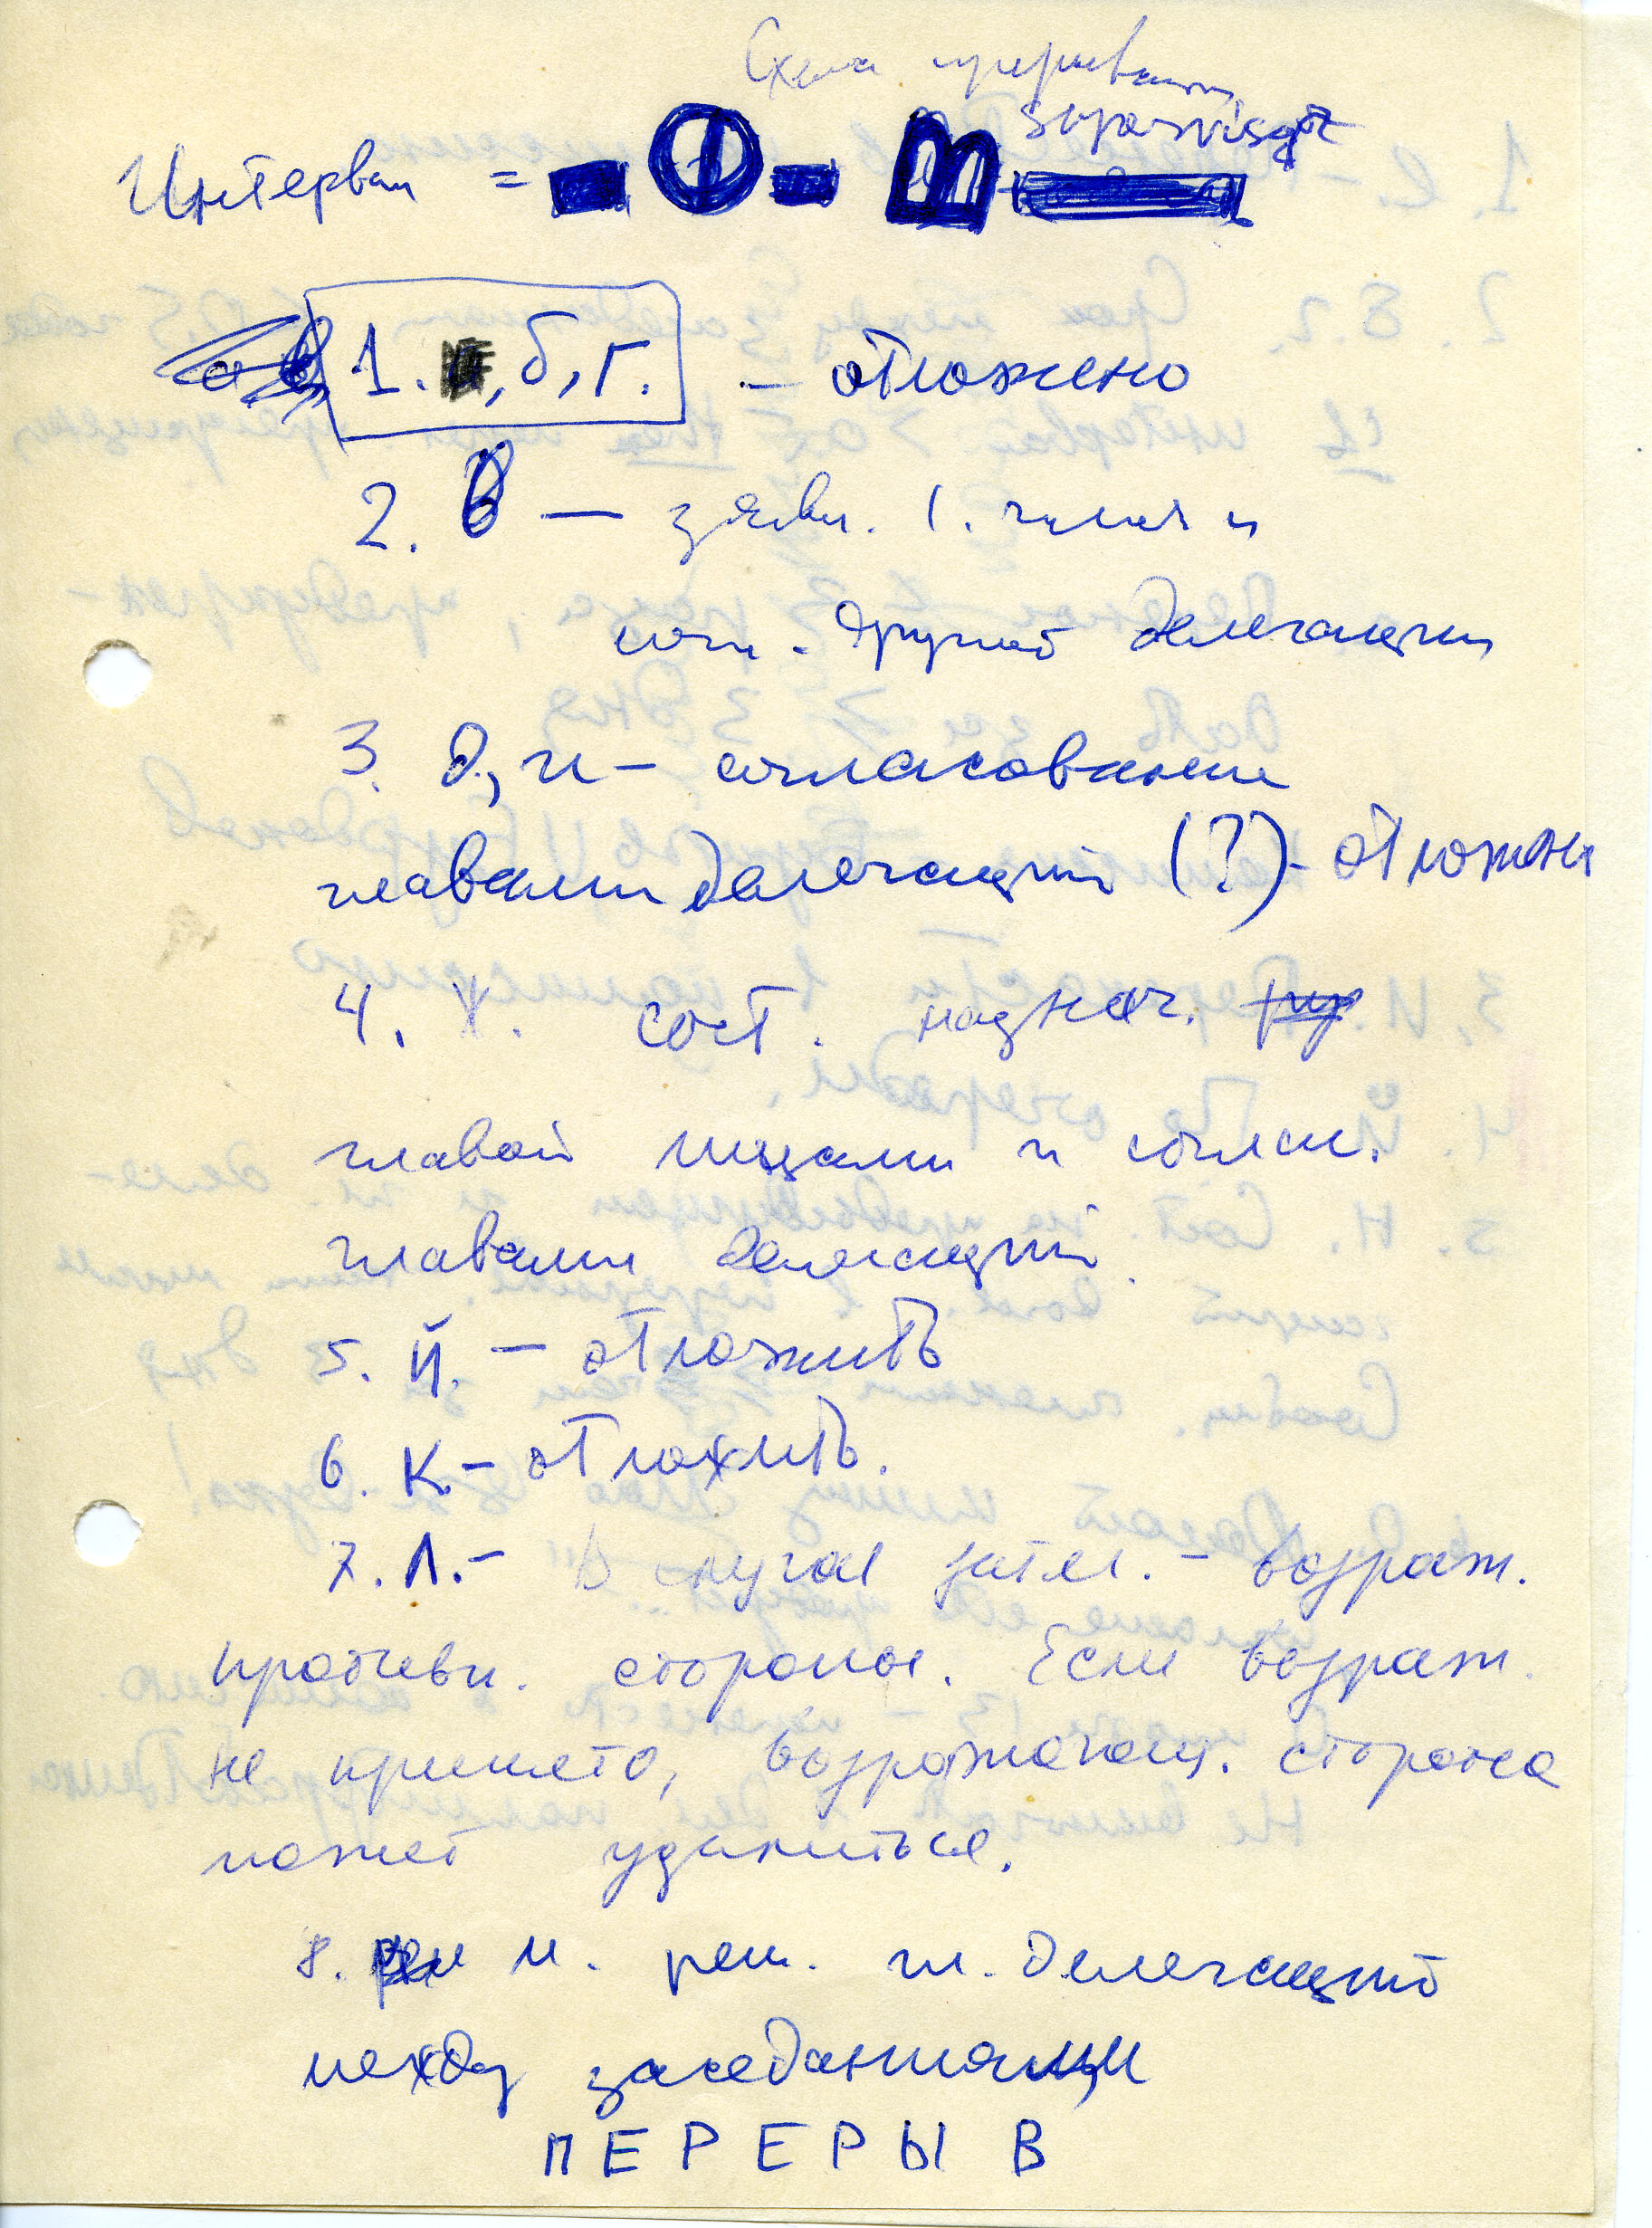 Схема прерывания
supervisor
Интервал =
1. , б, г. - отложено
2. в — заявл. 1. члена и
согл. другой делегации
3. д, и - согласование
главами делегаций (?) - отложен
4. Х. сост. назнач.
главой и соглас.
главами делегаций.
5. Й. - отложить
6. К. - отложить.
7. Л. - В случае - возраж.
противн. стороны. Если возраж.
не принято, возражающ. сторона
может удалиться.
8. м. реш. гл. делегаций
между заседаниями
ПЕРЕРЫВ